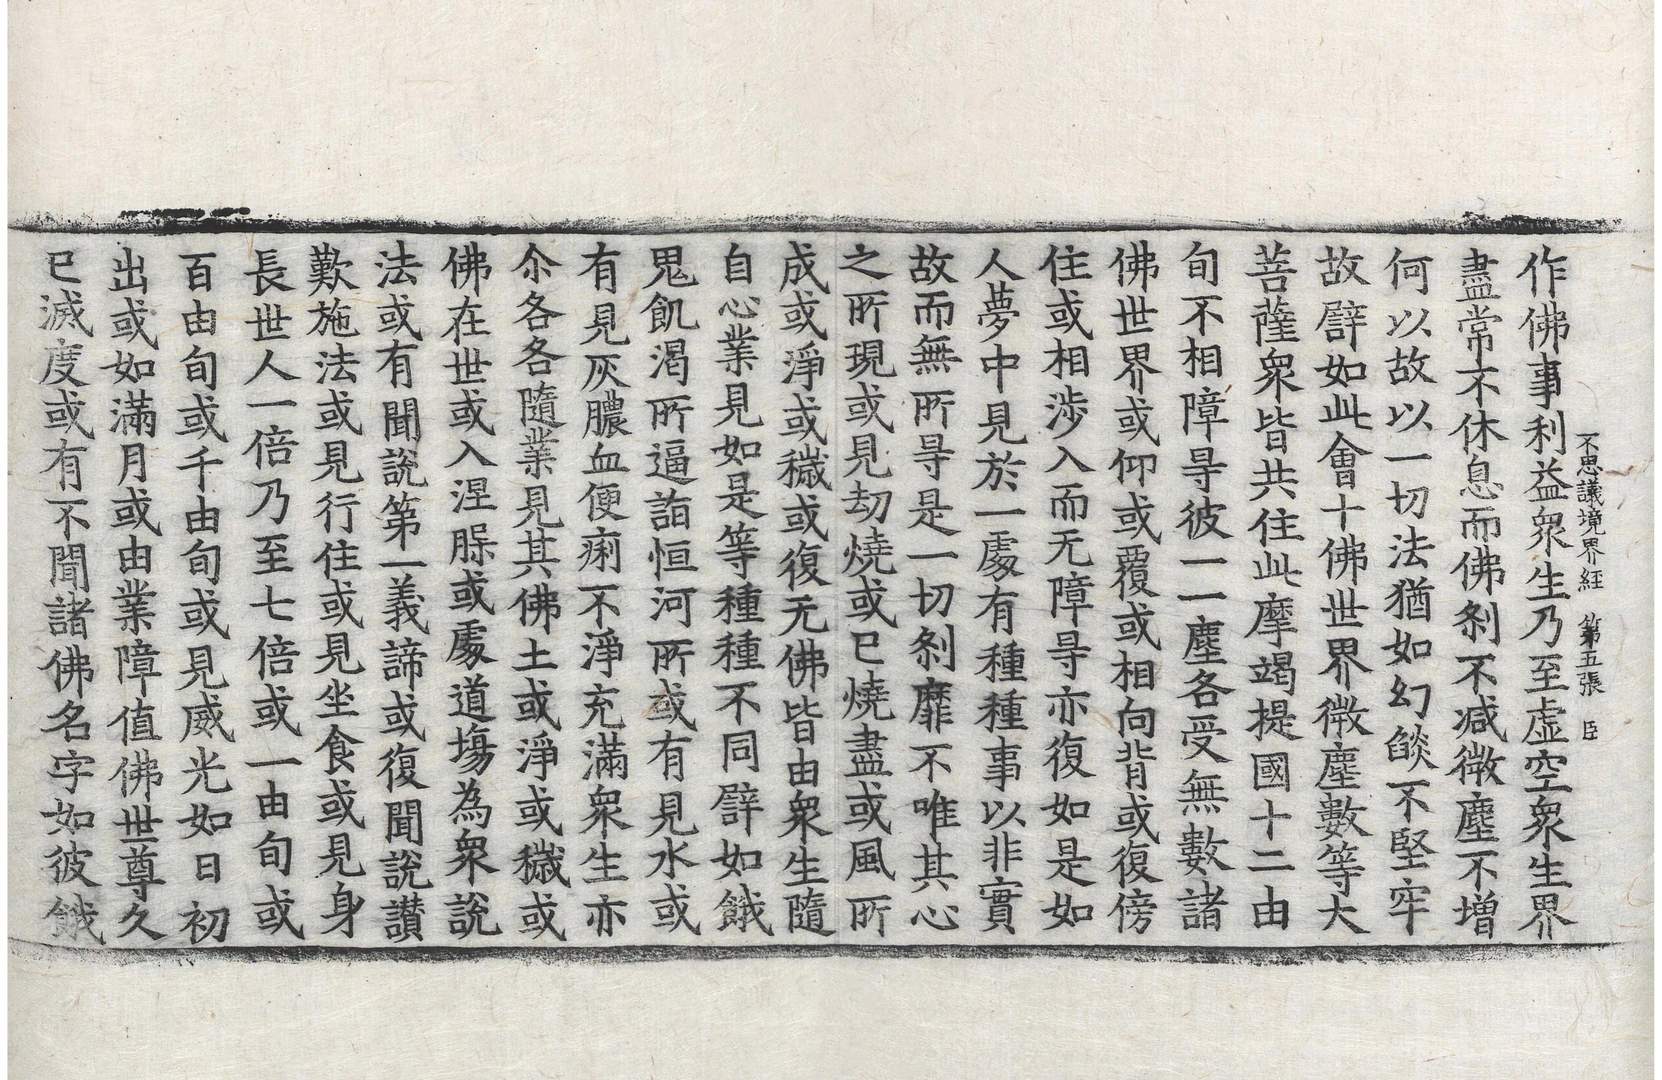 不思議境界経 第五張 臣
作佛事利益衆生乃至虚空衆生界
盡常不休息而佛刹不减微塵不增
何以故以一切法猶如幻燄不堅牢
故譬如此會十佛世界微塵數等大
菩薩衆皆共住此摩竭提國十二由
旬不相障㝵彼一一塵各受無數諸
佛世界或仰或覆或相向背或復傍
住或相涉入而无障㝵亦復如是如
人夢中見於一處有種種事以非實
故而無所㝵是一切刹靡不唯其心
之所現或見劫燒或已燒盡或風所
成或淨或穢或復无佛皆由衆生隨
自心業見如是等種種不同譬如餓
鬼飢渴所逼詣恒河所或有見水或
有見灰膿血便痢不淨充滿衆生亦
尒各各隨業見其佛土或淨或穢或
佛在世或入涅槃或處道場為衆說
法或有聞說第一義諦或復聞說讃
歎施法或見行住或見坐食或見身
長世人一倍乃至七倍或一由旬或
百由旬或千由旬或見威光如日初
出或如滿月或由業障值佛世尊久
已滅度或有不聞諸佛名字如彼餓